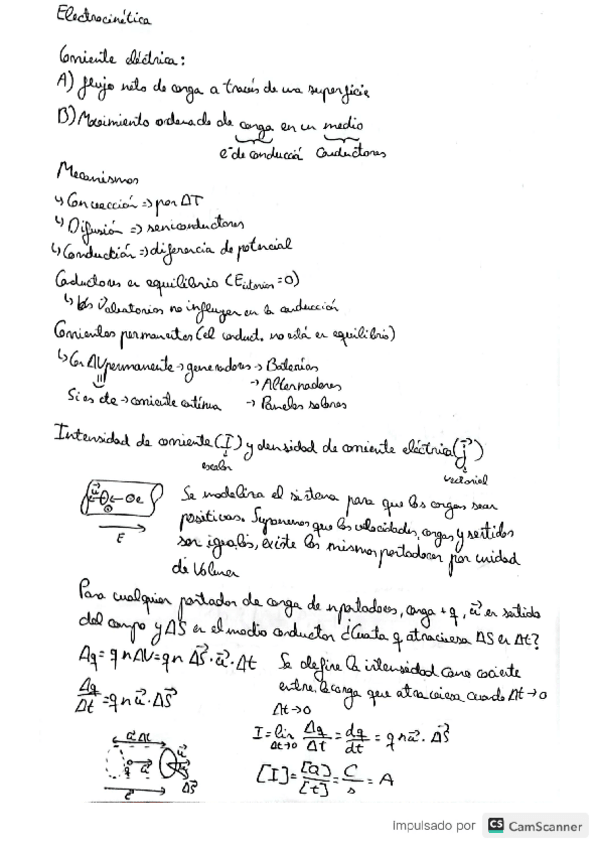 Electrocinética
Corriente eléctrica:
A) flujo neto de carga a través de una superficie
B) Movimiento ordenado de carga en un medio
e⁻ de conducción conductores
Mecanismos
↳ Convección => por ΔT
↳ Difusión => semiconductores
↳ Conducción => diferencia de potencial
Conductores en equilibrio (E interior = 0)
↳ los no influyen en la conducción
Corrientes permanentes (el conduct. no está en equilibrio)
↳ Con ΔV permanente → generadores → Baterías
→ Alternadores
Si es cte → corriente continua → Paneles solares
Intensidad de corriente (I) y densidad de corriente eléctrica (j⃗)
escalar vectorial
Se modeliza el sistema para que las cargas sean
positivas. Suponemos que las velocidades, cargas y sentidos
E son iguales, existe los mismos portadores por unidad
de Volumen
Para cualquier portador de carga de n portadores, carga + q, u⃗ en sentido
del campo y ΔS en el medio conductor ¿Cuanta q atraviesa ΔS en Δt?
Δq = q n ΔV = q n ΔS⃗ · u⃗ · Δt Se define la intensidad como cociente
entre la carga que atraviesa cuando Δt → 0
Δq/Δt = q n u⃗ · ΔS⃗ Δt → 0
I = lim Δt→0 Δq/Δt = dq/dt = q n u⃗ · ΔS⃗
u⃗ Δt u⃗ ΔS⃗
[I] = [Q]/[t] = C/s = A
Impulsado por CS CamScanner